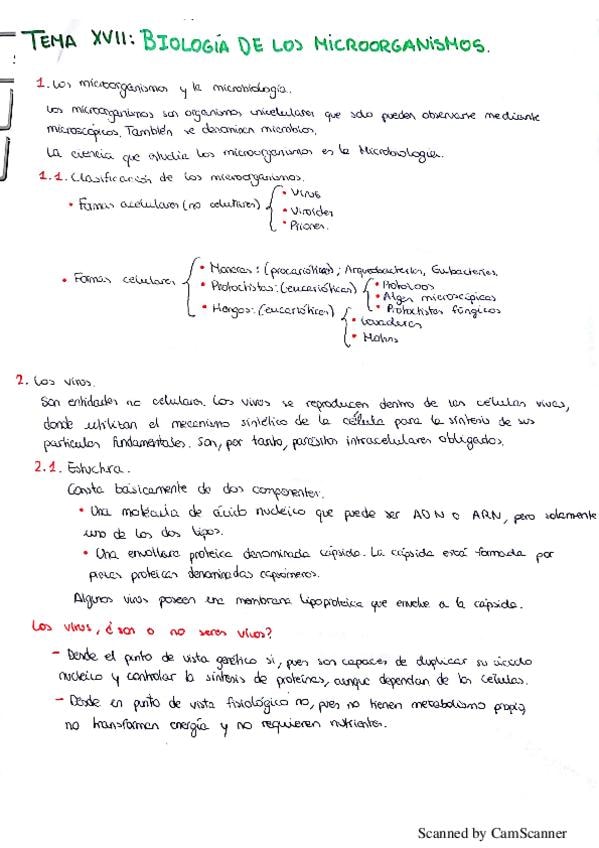 TEMA XVII: BIOLOGÍA DE LOS MICROORGANISMOS.
1. Los microorganismos y la microbiología.
Los microorganismos son organismos unicelulares que solo pueden observarse mediante
microscópicos. También se denominan microbios.
La ciencia que estudia los microorganismos es la Microbiología.
1.1. Clasificación de los microorganismos.
• Formas acelulares (no celulares)
• Virus
• Viroides
• Priones.
• Formas celulares
• Moneras: (procarióticas); Arqueobacterias, Eubacterias.
• Protoctistas: (eucarióticas)
• Protozoos
• Algas microscópicas
• Protoctistas fúngicos
• Hongos: (eucarióticos)
• Levaduras
• Mohos
2. Los virus.
Son entidades no celulares. Los virus se reproducen dentro de las células vivas,
donde utilizan el mecanismo sintético de la célula para la síntesis de sus
partículas fundamentales. Son, por tanto, parásitos intracelulares obligados.
2.1. Estructura.
Consta básicamente de dos componentes.
• Una molécula de ácido nucleico que puede ser ADN o ARN, pero solamente
uno de los dos tipos.
• Una envoltura proteica denominada cápsida. La cápsida está formada por
piezas proteicas denominadas capsómeros.
Algunos virus poseen una membrana lipoproteica que envuelve a la cápsida.
Los virus, ¿son o no seres vivos?
- Desde el punto de vista genético si, pues son capaces de duplicar su ácido
nucleico y controlar la síntesis de proteínas, aunque dependan de las células.
- Desde un punto de vista fisiológico no, pues no tienen metabolismo propio,
no transforman energía y no requieren nutrientes.
Scanned by CamScanner